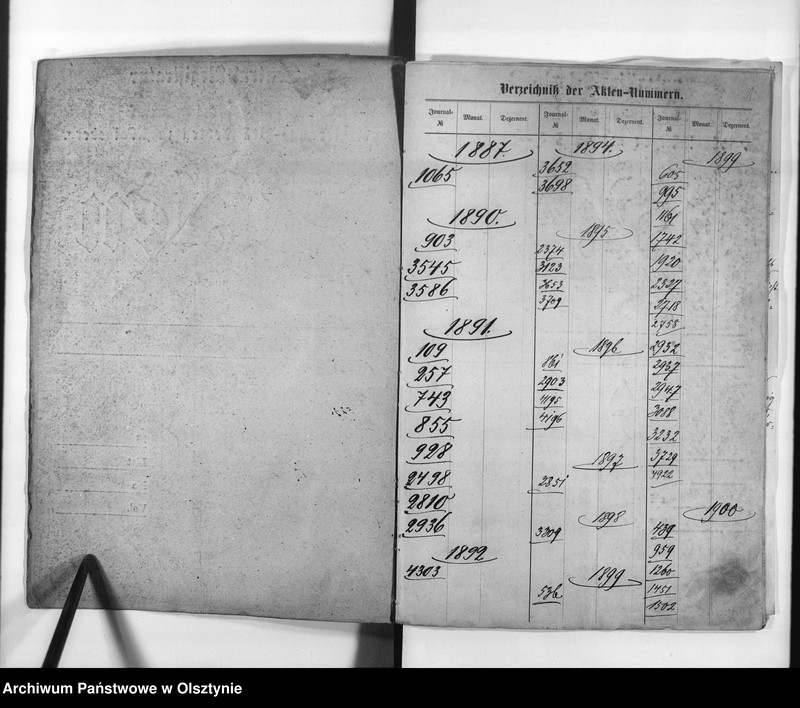 Verzeichniß der Akten-Nummern.
Journal- № Monat. Dezernent. Journal- № Monat. Dezernent. Journal- № Monat. Dezernent.
1887.
1065
1890.
903
3545
3586
1891.
109
257
743
855
928
2498
2810
2936
1892
4303
1894.
3652
3698
1895
2374
3123
2653
3709
1896
861
2903
4195
4196
1897
2851
1898
3309
1899
536
1899
605
995
1161
1742
1920
2327
2718
2758
2932
2937
2947
3088
3232
3729
4922
1900
439
959
1260
1451
1502
Archiwum Państwowe w Olsztynie